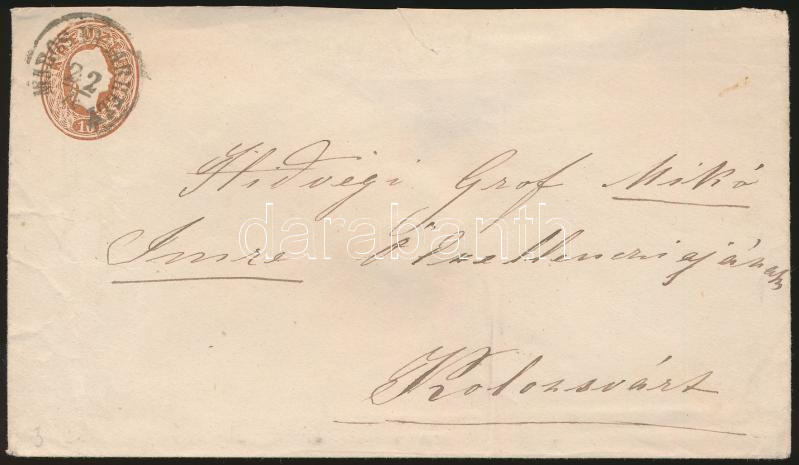 MAROS VÁSÁRHELY
Hidvégi Grof Mikó
Imre Ő Excellencziajának
Kolozsvárt
darabanth
3